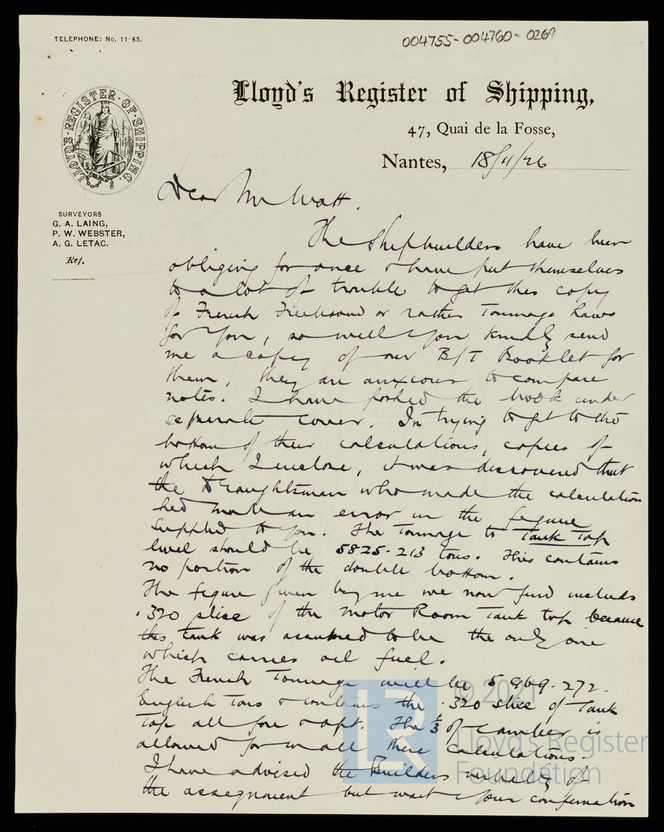 TELEPHONE: No. 11-65.
004755-004760-0269
Lloyd's Register of Shipping,
47, Quai de la Fosse,
Nantes, 18/11/26
LLOYDS REGISTER OF SHIPPING
SURVEYORS
G. A. LAING,
P. W. WEBSTER,
A. G. LETAC.
Ref.
Dear Mr Watt.
The Shipbuilders have been
obliging for once & have put themselves
to a lot of trouble to get this copy
of French Freeboard or rather Tonnage Laws
for you, so will you kindly send
me a copy of our B/T Booklet for
them, they are anxious to compare
notes. I have posted the book under
separate cover. In trying to get to the
bottom of their calculations, copies of
which I enclose, it was discovered that
the Draughtsman who made the calculation
had made an error in the figure
supplied to you. The Tonnage to Tank Top
level should be 5825.213 tons. This contains
no portion of the double bottom.
The figure given by me we now find includes
.320 slice of the Motor Room Tank top because
this tank was assumed to be the only one
which carries oil fuel.
The French Tonnage will be 5969.272.
English Tons & contains the .320 slice of Tank
Top all fore & aft. The 1/3 of camber is
allowed for in all these calculations.
I have advised the Builders verbally of
the assignment but wait your confirmation
LR © 2021
Lloyd's Register
Foundation